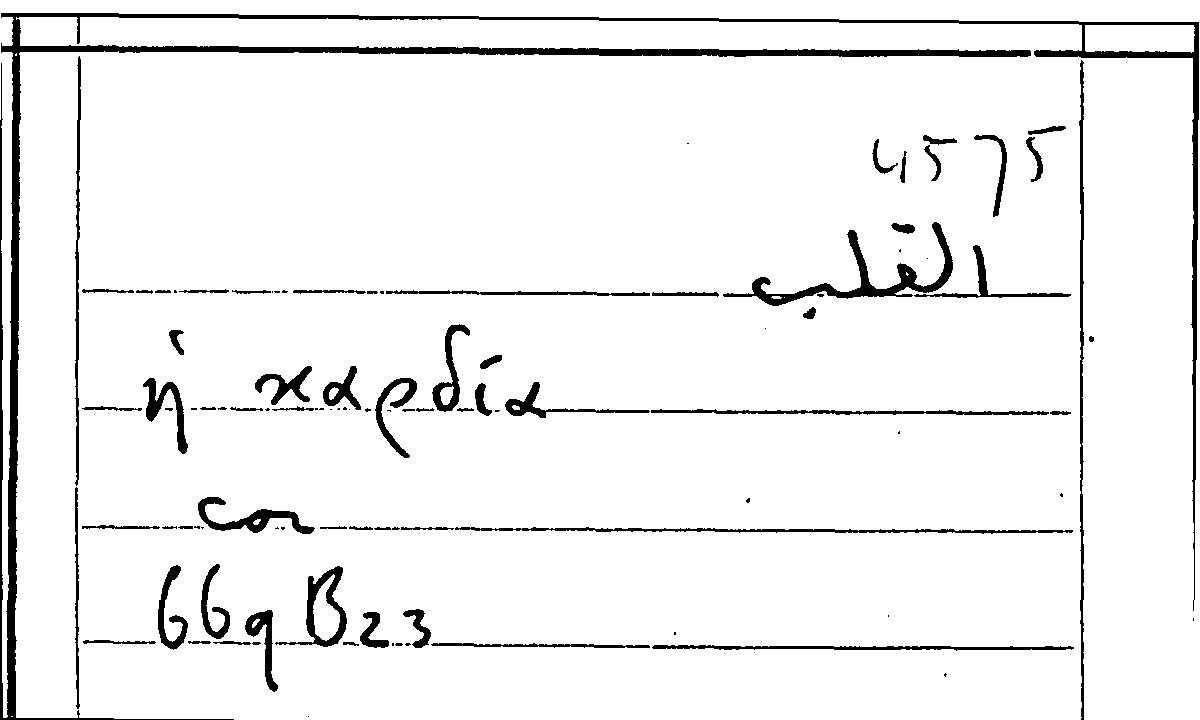 4575
القلب
ἡ καρδία
cor
669 B23